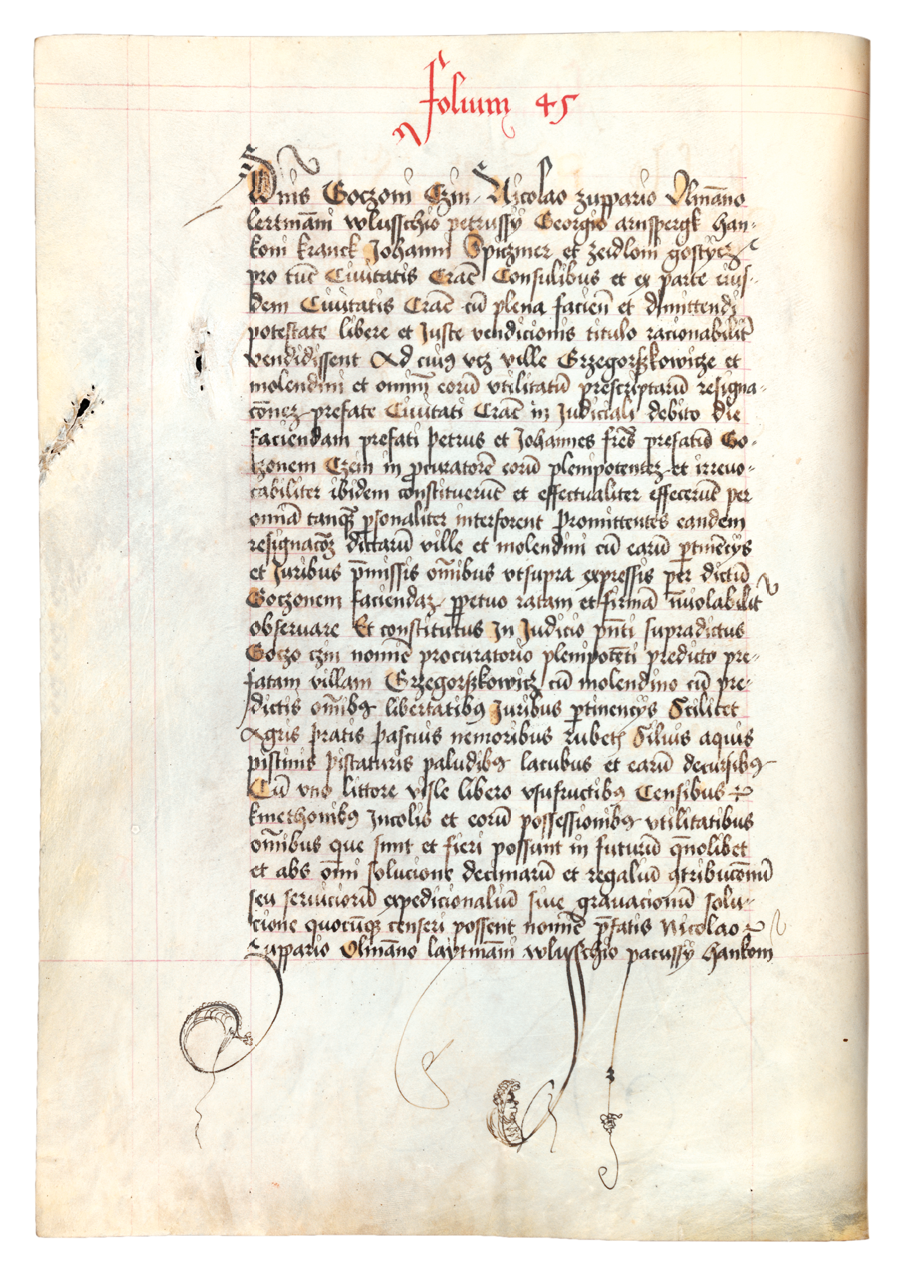 Folium 45
Dnis Goczoni Czin Nicolao zuppario Olmāno
lertmāni wlusschio petrussy Georgio arnspergk han-
koni kranck Johanni Spiczmer et zeidloni gostycz
pro tūc Ciuitatis Crac̄ Consulibus et ex parte eius-
dem Ciuitatis Crac̄ cū plena facien̄ et dimittendi
potestate libere et Juste vendicionis titulo racionabilit̄
vendidissent Ad cuiꝯ vcz ville Grzegorzkowicze et
molendini et omniū eorū vtilitatū prescriptarū resigna-
cōnez prefate Ciuitati Crac̄ in Judiciali debito die
faciendam prefati Petrus et Johannes fr̄es prefatū Go-
czonem Czein in ꝓcuratorē eorū plenipotentez et irreuo-
cabiliter ibidem constituerūt et effectualiter effecerūt per
omnā tanqꝫ ꝑsonaliter interforent Promittentes eandem
resignacōꝫ dictarū ville et molendini cū earū ꝑtinēcys
et Juribus p̄missis om̄ibus vtsupra expressis per dictū
Goczonem faciendaꝫ ꝑpetuo ratam et firmā īuiolabilit̄
obseruare Et constitutus In Judicio pn̄ti supradictus
Goczo czin nomīe procuratorio plenipotēti predicto pre-
fatam villam Grzegorzkowicz cū molendino cū pre-
dictis om̄ibꝯ libertatibꝯ Juribus ꝑtinencys Scilicet
Agris pratis pascuis nemoribus rubetꝭ Siluis aquis
pistinis pistaturis paludibꝯ lacubus et earū decursibꝯ
Cū vno littore visle libero vsufructibꝯ Censibus ꝛ
kmethonibꝯ Incolis et eorū possessionibꝯ vtilitatibus
om̄ibus que sunt et fieri possunt in futurū qūolibet
et abs om̄i solucione decimarū et regaliū ɔtribucōnū
seu seruiciorū expedicionaliū siue grauacionū solu-
cione quocūqꝫ censeri possent nomīe p̄fatis Nicolao ꝛ
zuppario Olmāno laytmāni wlusschio pacussy hankoni